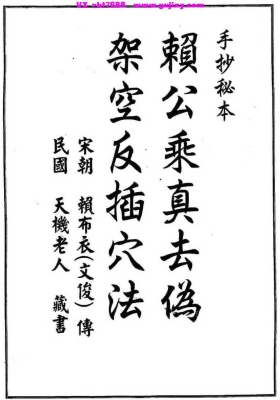 手抄秘本
賴公乘真去偽
架空反插穴法
宋朝 賴布衣(文俊) 傳
民國 天機老人 藏書